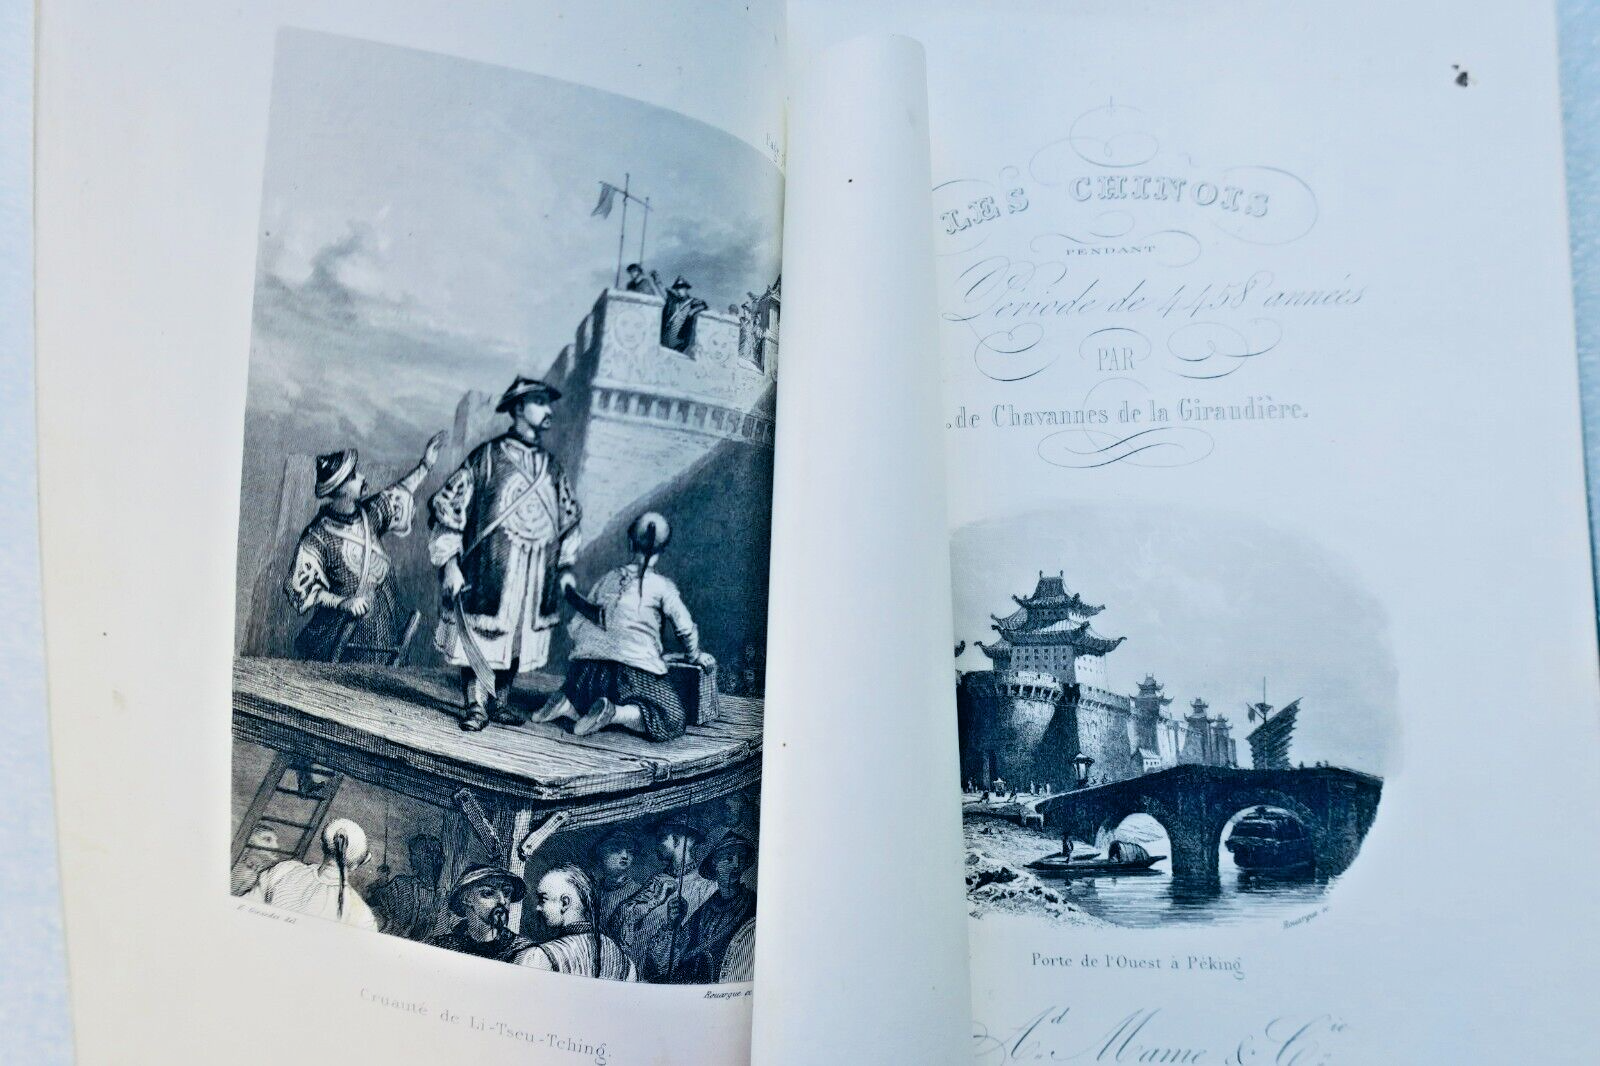 Cruauté de Li-Tseu-Tching.
Rouargue
LES CHINOIS
PENDANT
Période de 4458 années
PAR
. de Chavannes de la Giraudière.
Rouargue sc
Porte de l'Ouest à Péking
Ad. Mame & Cie